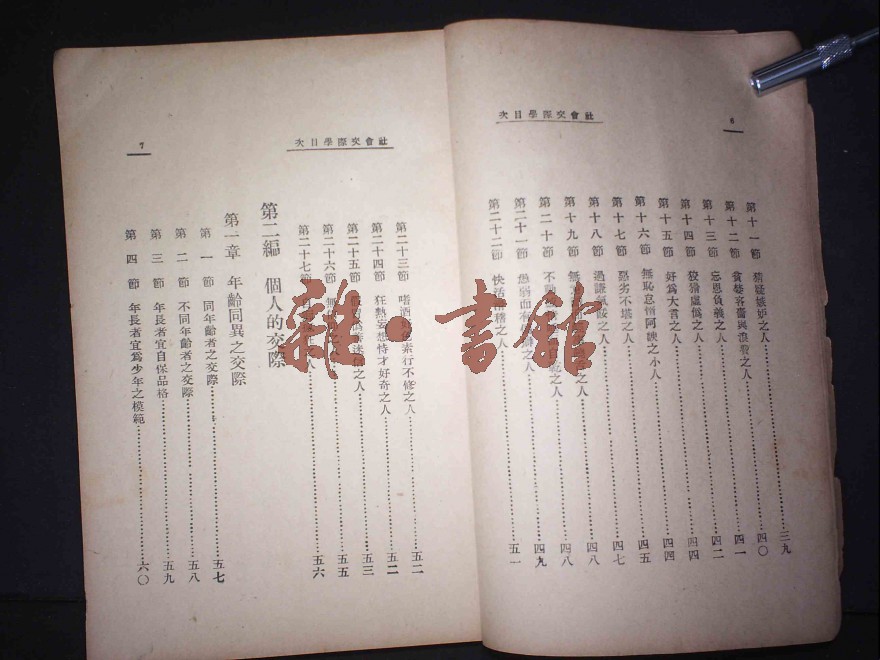 社會交際學目次
6
第十一節 猜疑嫉妒之人 三九
第十二節 貪婪吝嗇與浪費之人 四〇
第十三節 忘恩負義之人 四一
第十四節 狡猾虛僞之人 四二
第十五節 好爲大言之人 四四
第十六節 無恥怠惰阿諛之小人 四四
第十七節 惡劣不堪之人 四七
第十八節 過謙氣餒之人 四八
第十九節 無 之人 四八
第二十節 不 之人 四九
第二十一節 愚弱而 之人
第二十二節 快活滑稽之人 五一
社會交際學目次
7
第二十三節 嗜酒 素行不修之人 五二
第二十四節 狂熱妄想恃才好奇之人 五二
第二十五節 迷信之人 五三
第二十六節 無 之人 五五
第二十七節 人 五六
第二編 個人的交際
第一章 年齡同異之交際
第一節 同年齡者之交際 五七
第二節 不同年齡者之交際 五八
第三節 年長者宜自保品格 五九
第四節 年長者宜爲少年之模範 六〇
雜·書館